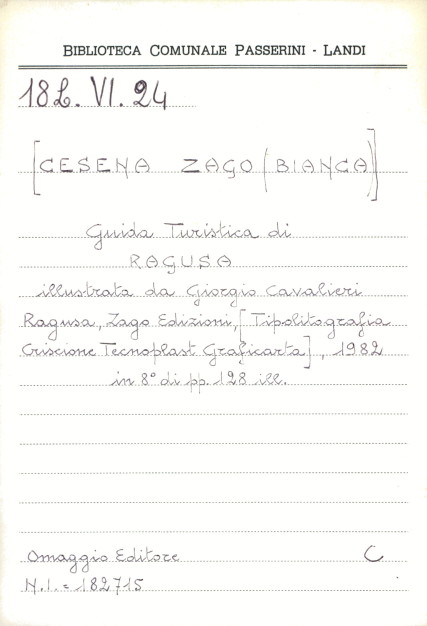 BIBLIOTECA COMUNALE PASSERINI - LANDI
18L. VI. 24
[CESENA ZAGO (BIANCA)]
Guida Turistica di
RAGUSA
illustrata da Giorgio Cavalieri
Ragusa, Zago Edizioni, [Tipolitografia
Criscione Tecnoplast Graficarta], 1982
in 8° di pp. 128 ill.
Omaggio Editore C
N.I. = 182715